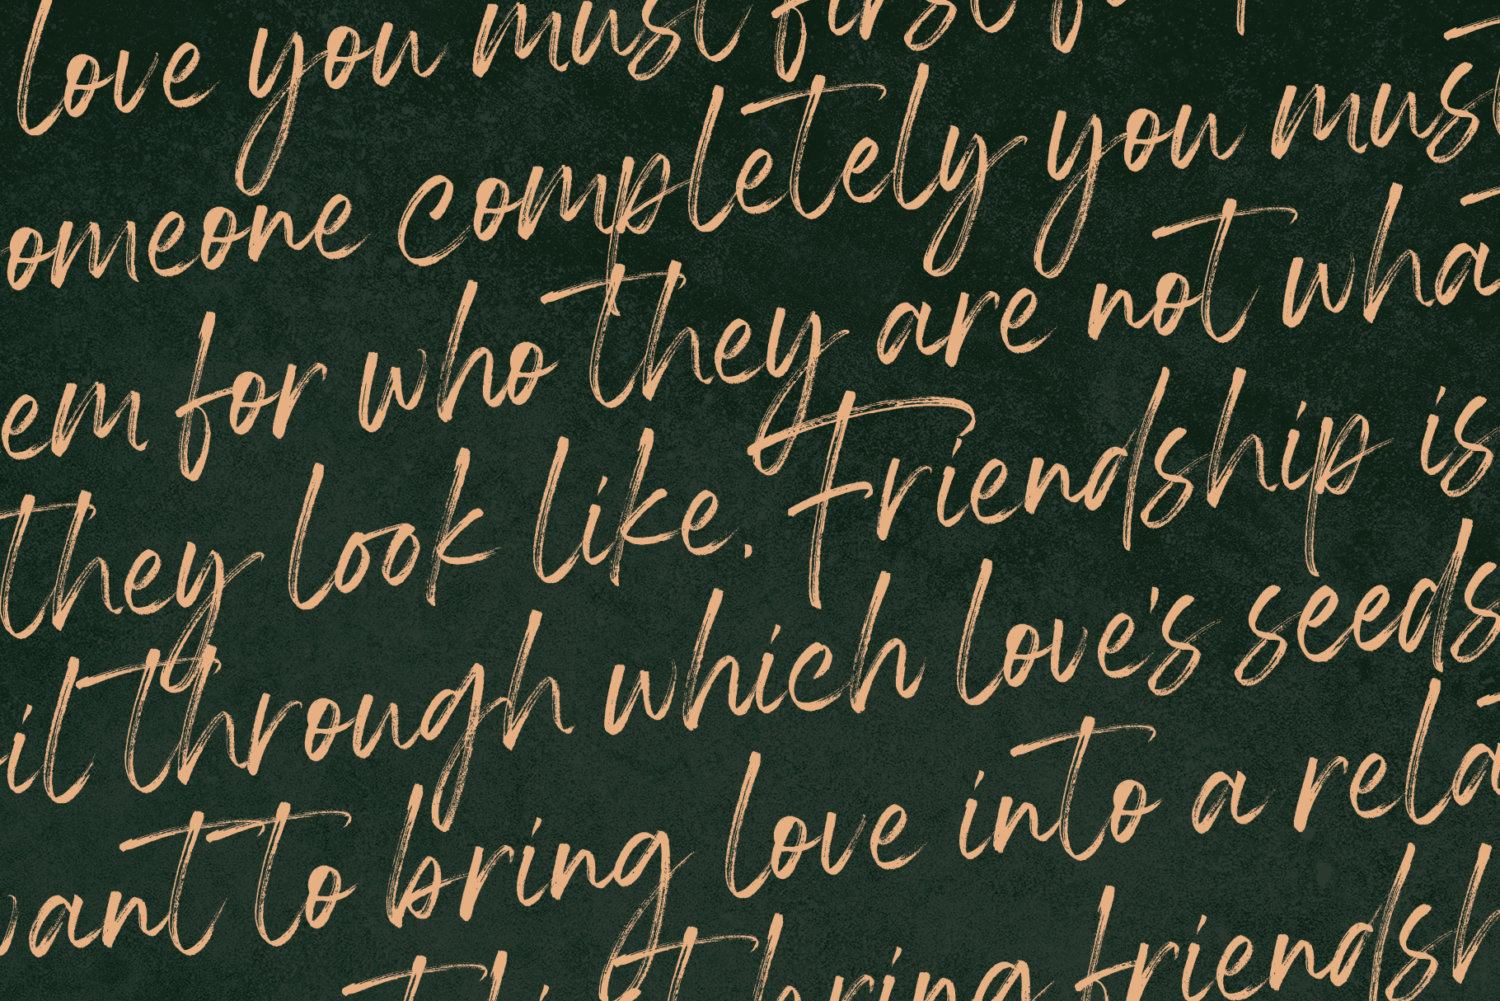 love you must first
omeone completely you must
em for who they are not wha
they look like. Friendship is
it through which love's seeds
want to bring love into a rela
bring friendsh